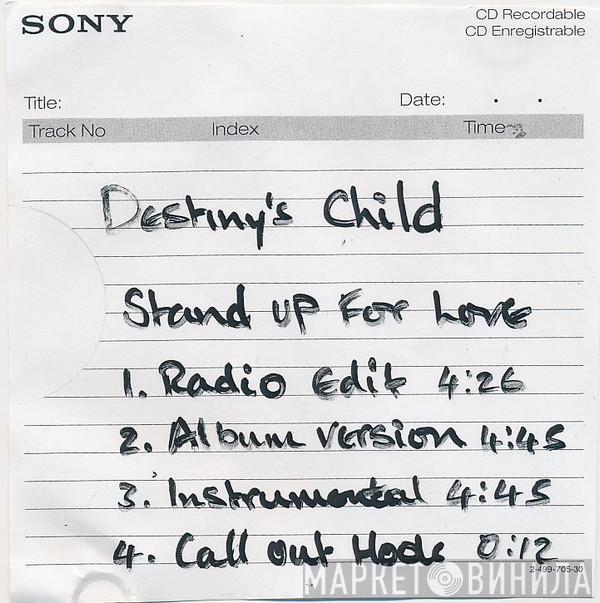 SONY
CD Recordable
CD Enregistrable
Title: Date: . .
Track No Index Time
Destiny's Child
Stand up For Love
1. Radio Edit 4:26
2. Album version 4:45
3. Instrumental 4:45
4. Call out Hook 0:12
2-499-705-30
МАРКЕТ ВИНИЛА